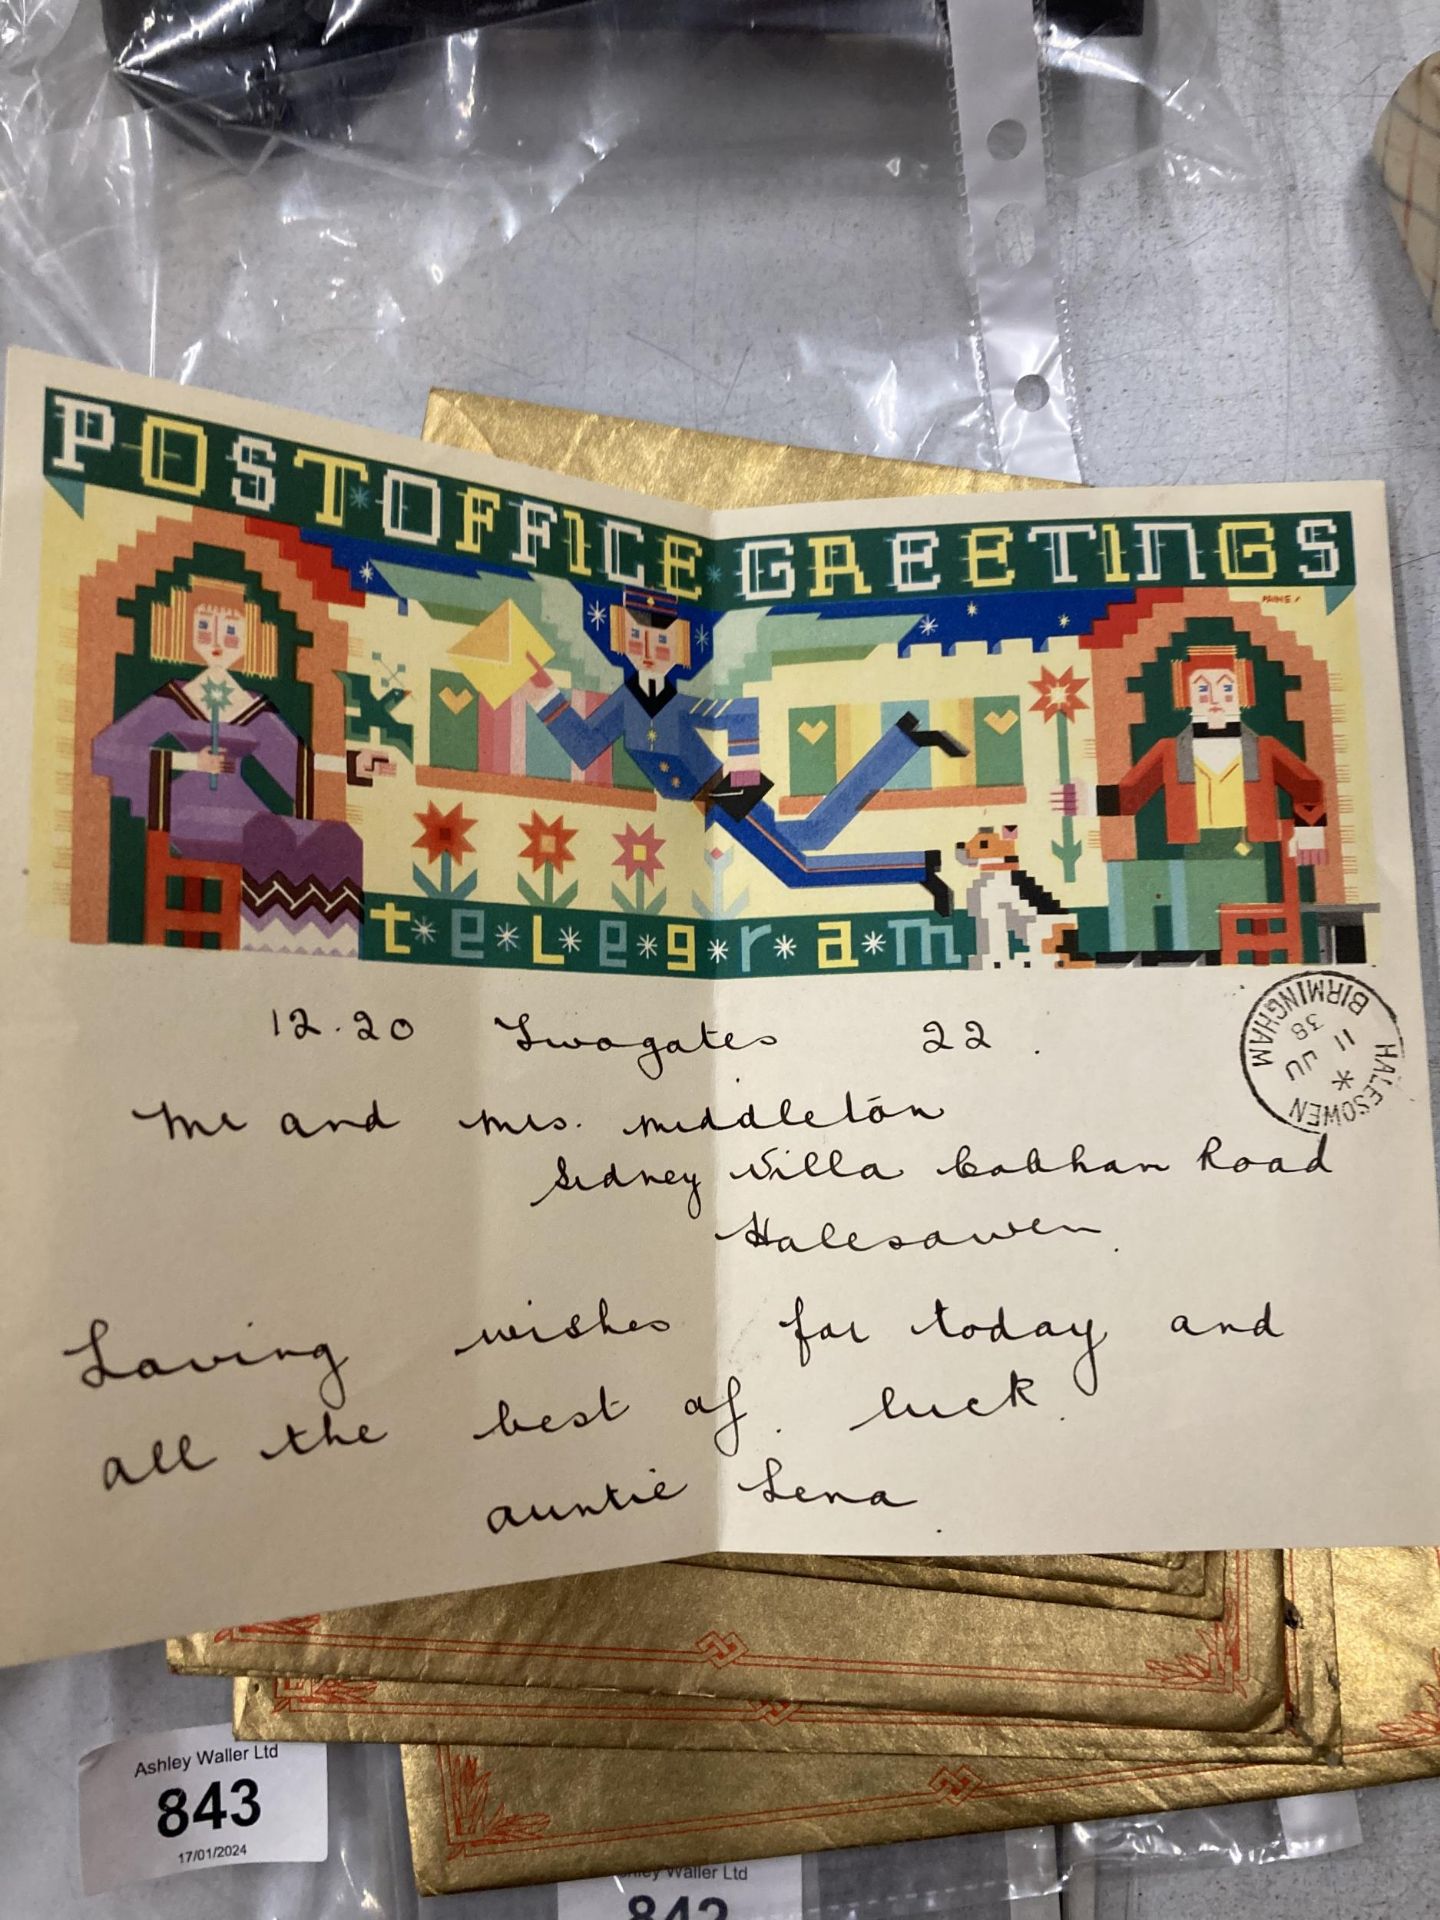 POST OFFICE GREETINGS
PAINE
telegram
12.20 Twogates 22.
Mr and Mrs. Middleton
Sidney Villa Cobham Road
Halesowen.
Loving wishes for today and
all the best of. luck.
auntie Lena.
HALESOWEN BIRMINGHAM
11 JU
38
Ashley Waller Ltd
843
17/01/2024
Ashley Waller Ltd
842